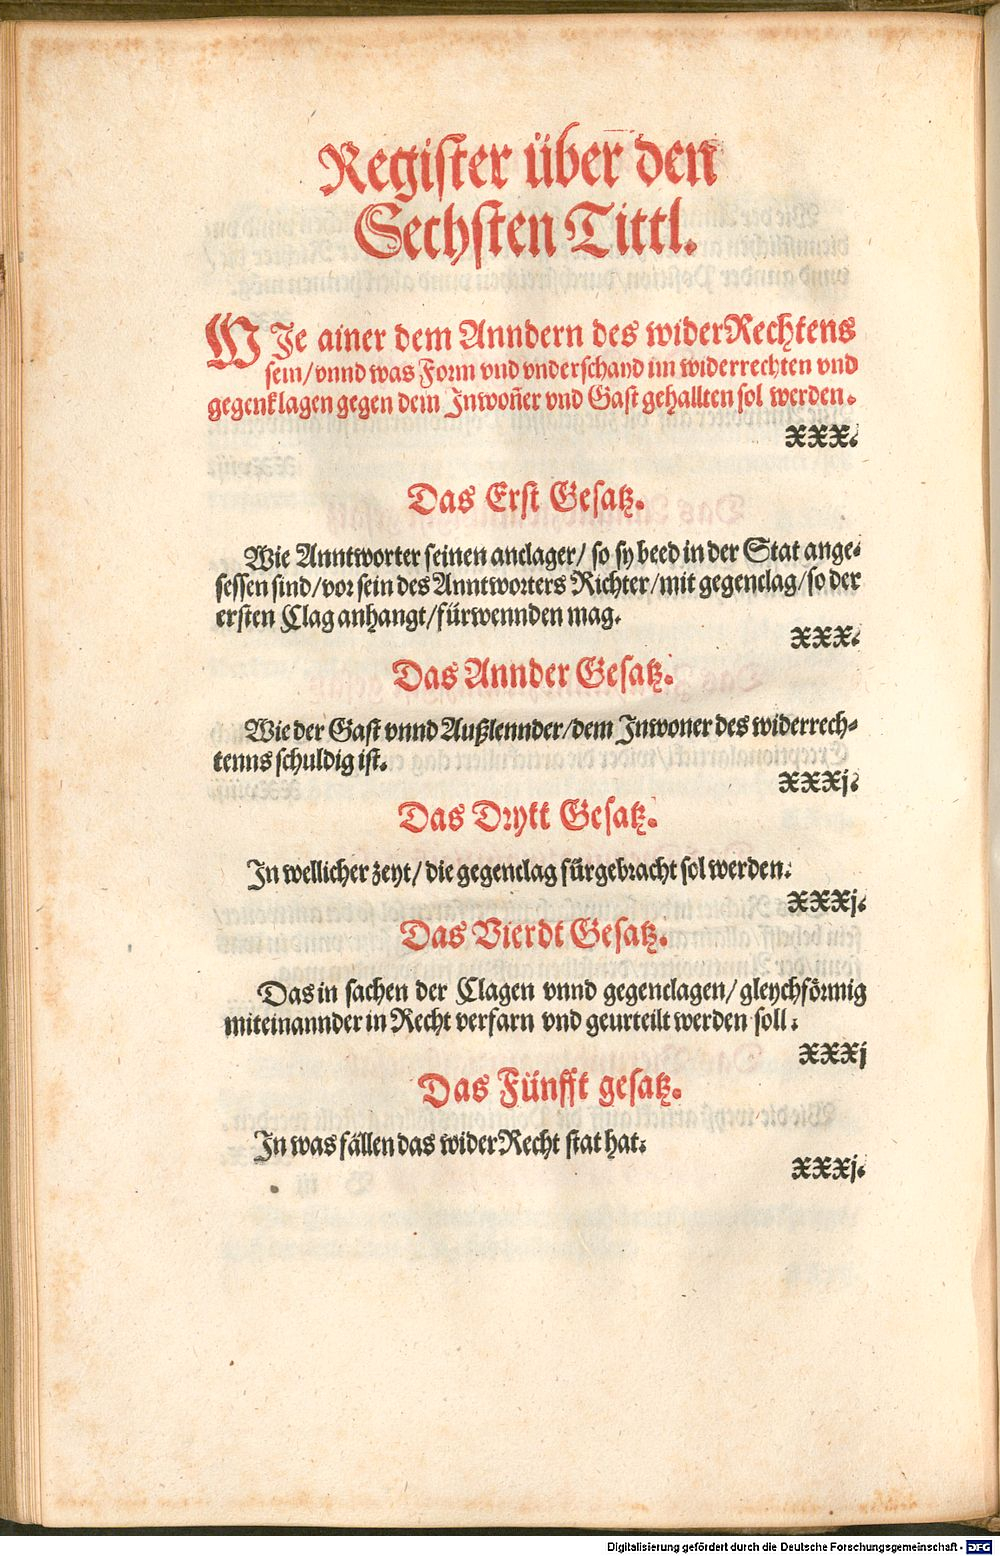 Register über den
Sechsten Tittl.
WJe ainer dem Anndern des widerRechtens
sein/ vnnd was Form vnd vnderschayd im widerrechten vnd
gegenklagen gegen dem Jnwoñer vnd Gast gehallten sol werden.
xxx.
Das Erst Gesatz.
Wie Anntworter seinen anclager/ so sy beed in der Stat ange⸗
sessen sind/ vor sein des Anntworters Richter/ mit gegenclag/ so der
ersten Clag anhangt/ fürwennden mag.
xxx.
Das Annder Gesatz.
Wie der Gast vnnd Außlennder/ dem Jnwoner des widerrech⸗
tenns schuldig ist.
xxxj.
Das Drytt Gesatz.
Jn wellicher zeyt/ die gegenclag fürgebracht sol werden.
xxxj.
Das Vierdt Gesatz.
Das in sachen der Clagen vnnd gegenclagen/ gleychförmig
miteinannder in Recht verfarn vnd geurteilt werden soll.
xxxj
Das Fünfft gesatz.
Jn was fällen das widerRecht stat hat.
xxxj.
Digitalisierung gefördert durch die Deutsche Forschungsgemeinschaft - DFG